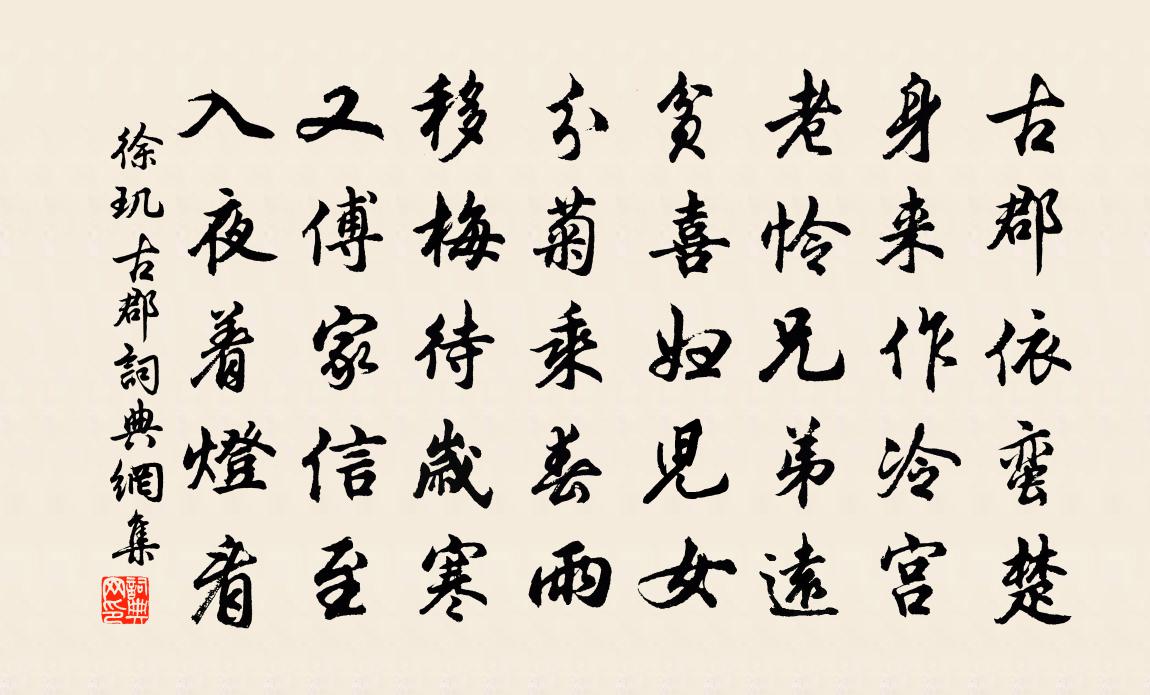 古郡依蛮楚
身来作冷官
老怜兄弟遠
贫喜妇児安
分菊乘春雨
移梅待歲寒
又傳家信至
入夜着燈看
徐玑 古郡 詞典網集
詞典网印